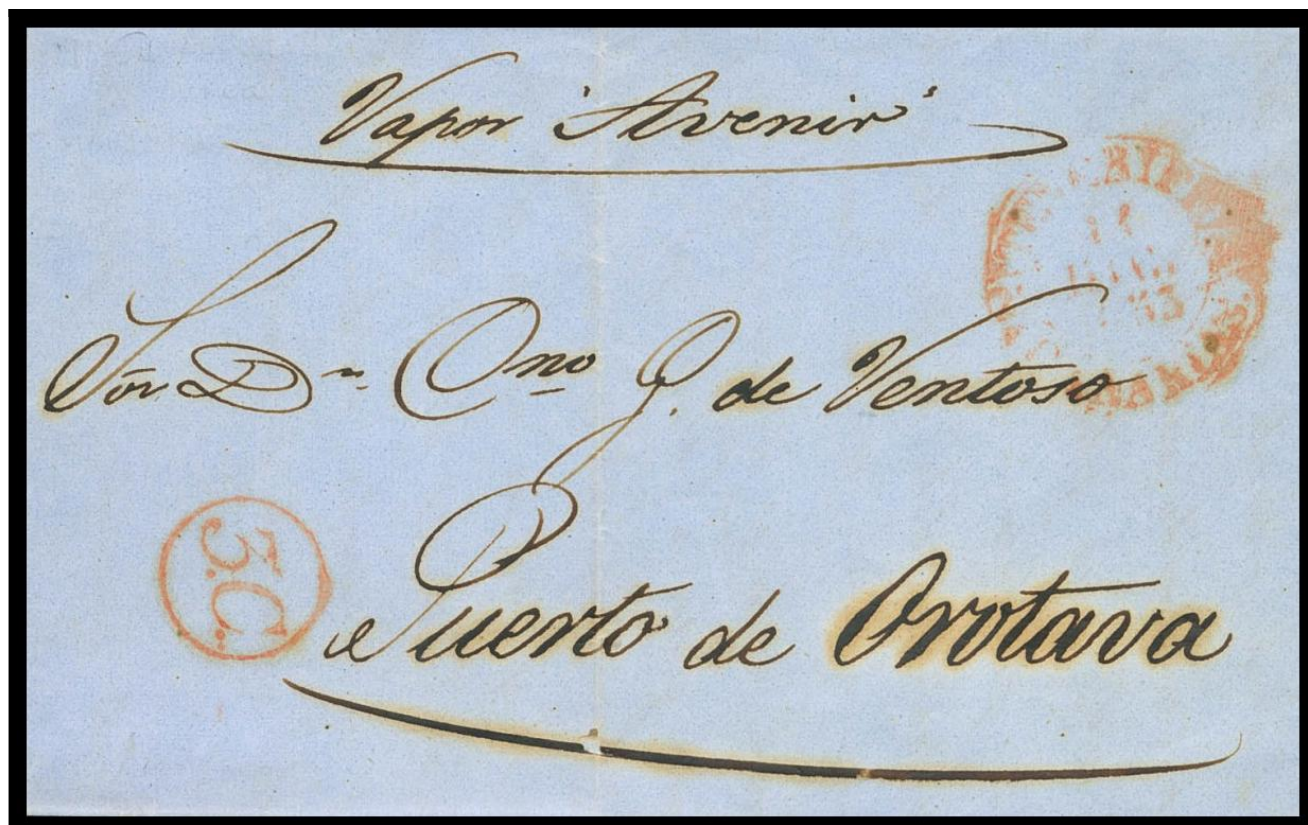 Vapor "Avenir"
Sōr. Dⁿ. Cⁿᵒ J. de Ventoso
3.C.
Puerto de Orotava